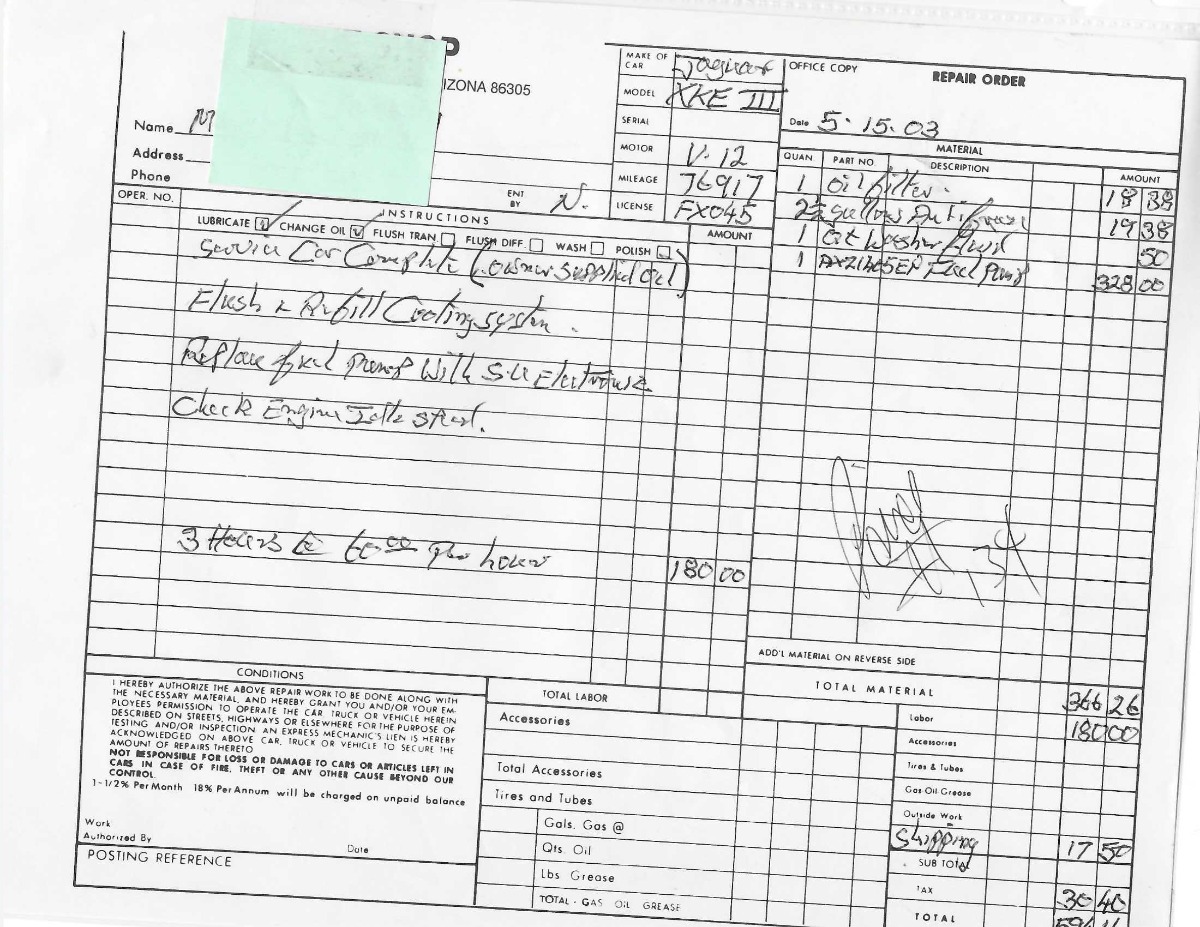 SHOP
IZONA 86305
Name M
Address
Phone
MAKE OF CAR Jaguar
MODEL XKE III
SERIAL
MOTOR V-12
MILEAGE 76917
LICENSE FX045
ENT BY N.
OFFICE COPY
REPAIR ORDER
Date 5-15-03
MATERIAL
QUAN. PART NO. DESCRIPTION AMOUNT
1 Oil filter. 18 38
2½ gallons Antifreeze 19 38
1 Qt Washer Fluid 50
1 Fuel Pump 328 00
OPER. NO. INSTRUCTIONS AMOUNT
LUBRICATE CHANGE OIL FLUSH TRAN. FLUSH DIFF. WASH POLISH
Service Car Complete (owner supplied oil)
Flush & Refill Cooling system.
Replace fuel pump With S.U Electronic
Check Engine Idle
3 Hours @ 60.00 per hour
180 00
ADD'L MATERIAL ON REVERSE SIDE
TOTAL MATERIAL 366 26
CONDITIONS
I HEREBY AUTHORIZE THE ABOVE REPAIR WORK TO BE DONE ALONG WITH
THE NECESSARY MATERIAL, AND HEREBY GRANT YOU AND/OR YOUR EM-
PLOYEES PERMISSION TO OPERATE THE CAR, TRUCK OR VEHICLE HEREIN
DESCRIBED ON STREETS, HIGHWAYS OR ELSEWHERE FOR THE PURPOSE OF
TESTING AND/OR INSPECTION AN EXPRESS MECHANIC'S LIEN IS HEREBY
ACKNOWLEDGED ON ABOVE CAR, TRUCK OR VEHICLE TO SECURE THE
AMOUNT OF REPAIRS THERETO
NOT RESPONSIBLE FOR LOSS OR DAMAGE TO CARS OR ARTICLES LEFT IN
CARS IN CASE OF FIRE, THEFT OR ANY OTHER CAUSE BEYOND OUR
CONTROL.
1-1/2% Per Month 18% Per Annum will be charged on unpaid balance
Work
Authorized By
Date
POSTING REFERENCE
TOTAL LABOR
Accessories
Total Accessories
Tires and Tubes
Gals. Gas @
Qts. Oil
Lbs Grease
TOTAL - GAS OIL GREASE
Labor 180 00
Accessories
Tires & Tubes
Gas-Oil-Grease
Outside Work
Shipping 17 50
SUB TOTAL
TAX 30 40
TOTAL